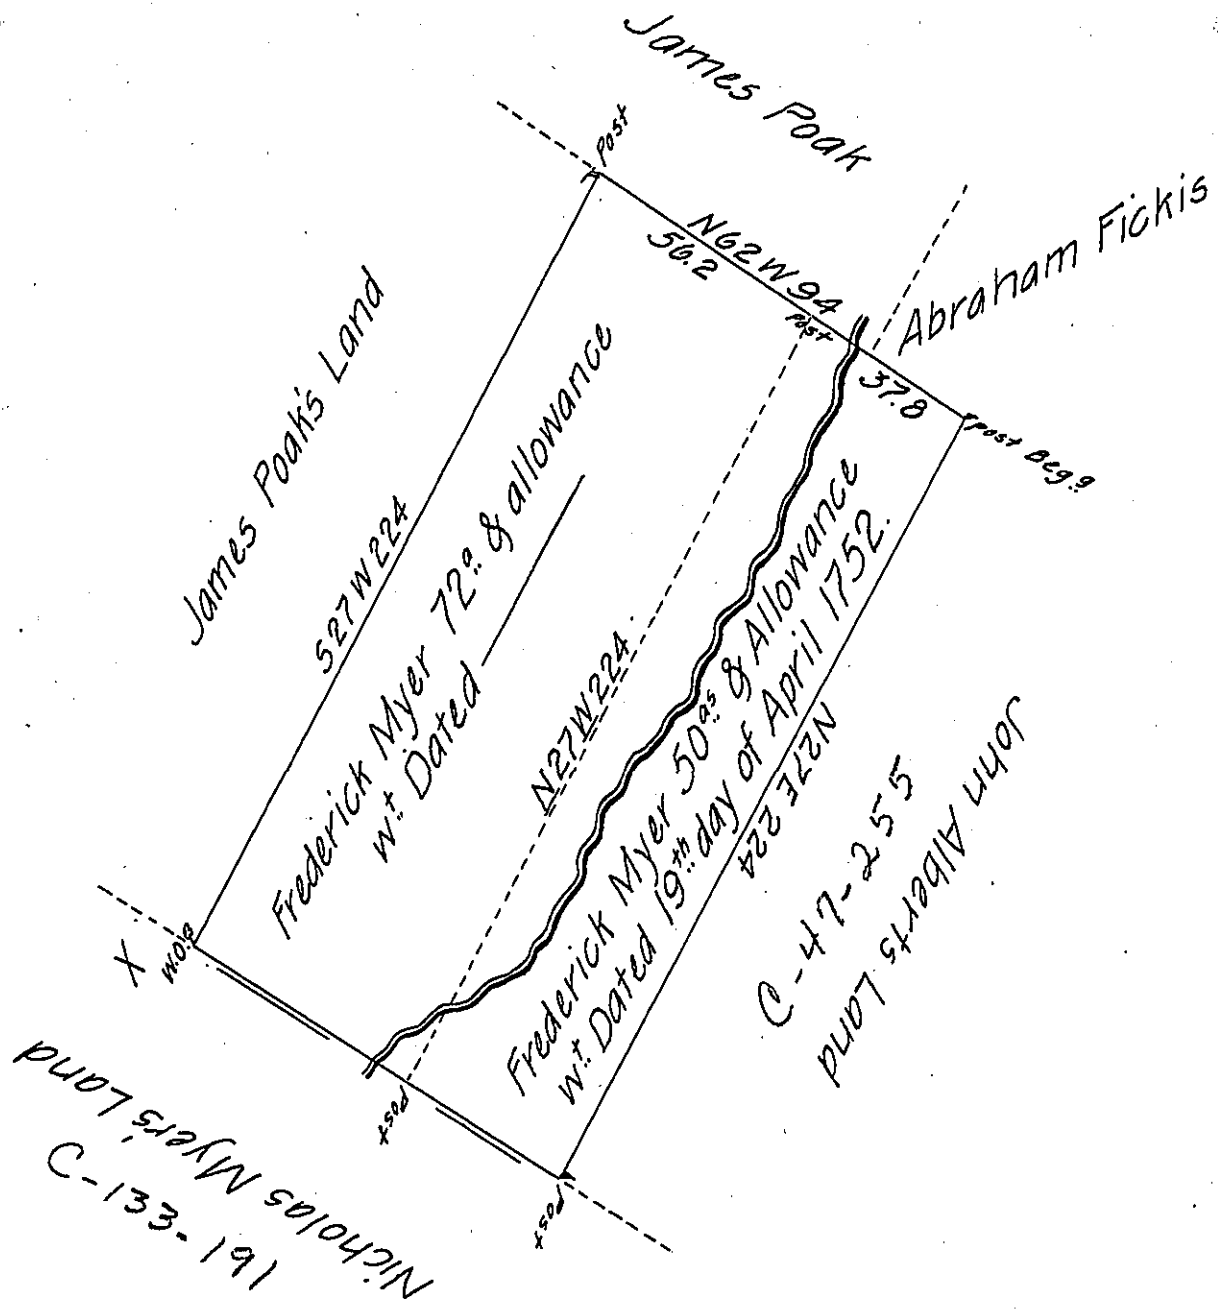 James Poak
Post
N62W94
56.2
Post
Abraham Fickis
37.8
Post Beg.g
James Poak's Land
S27W224
Frederick Myer 72a. & allowance
wt. Dated
N27W224.
Frederick Myer 50as & Allowance
wt. Dated 19th day of April 1752.
N27E 224
C-47-255
John Alberts Land
X
W.O.
Post
Post
Nicholas Myer's Land
C-133-191